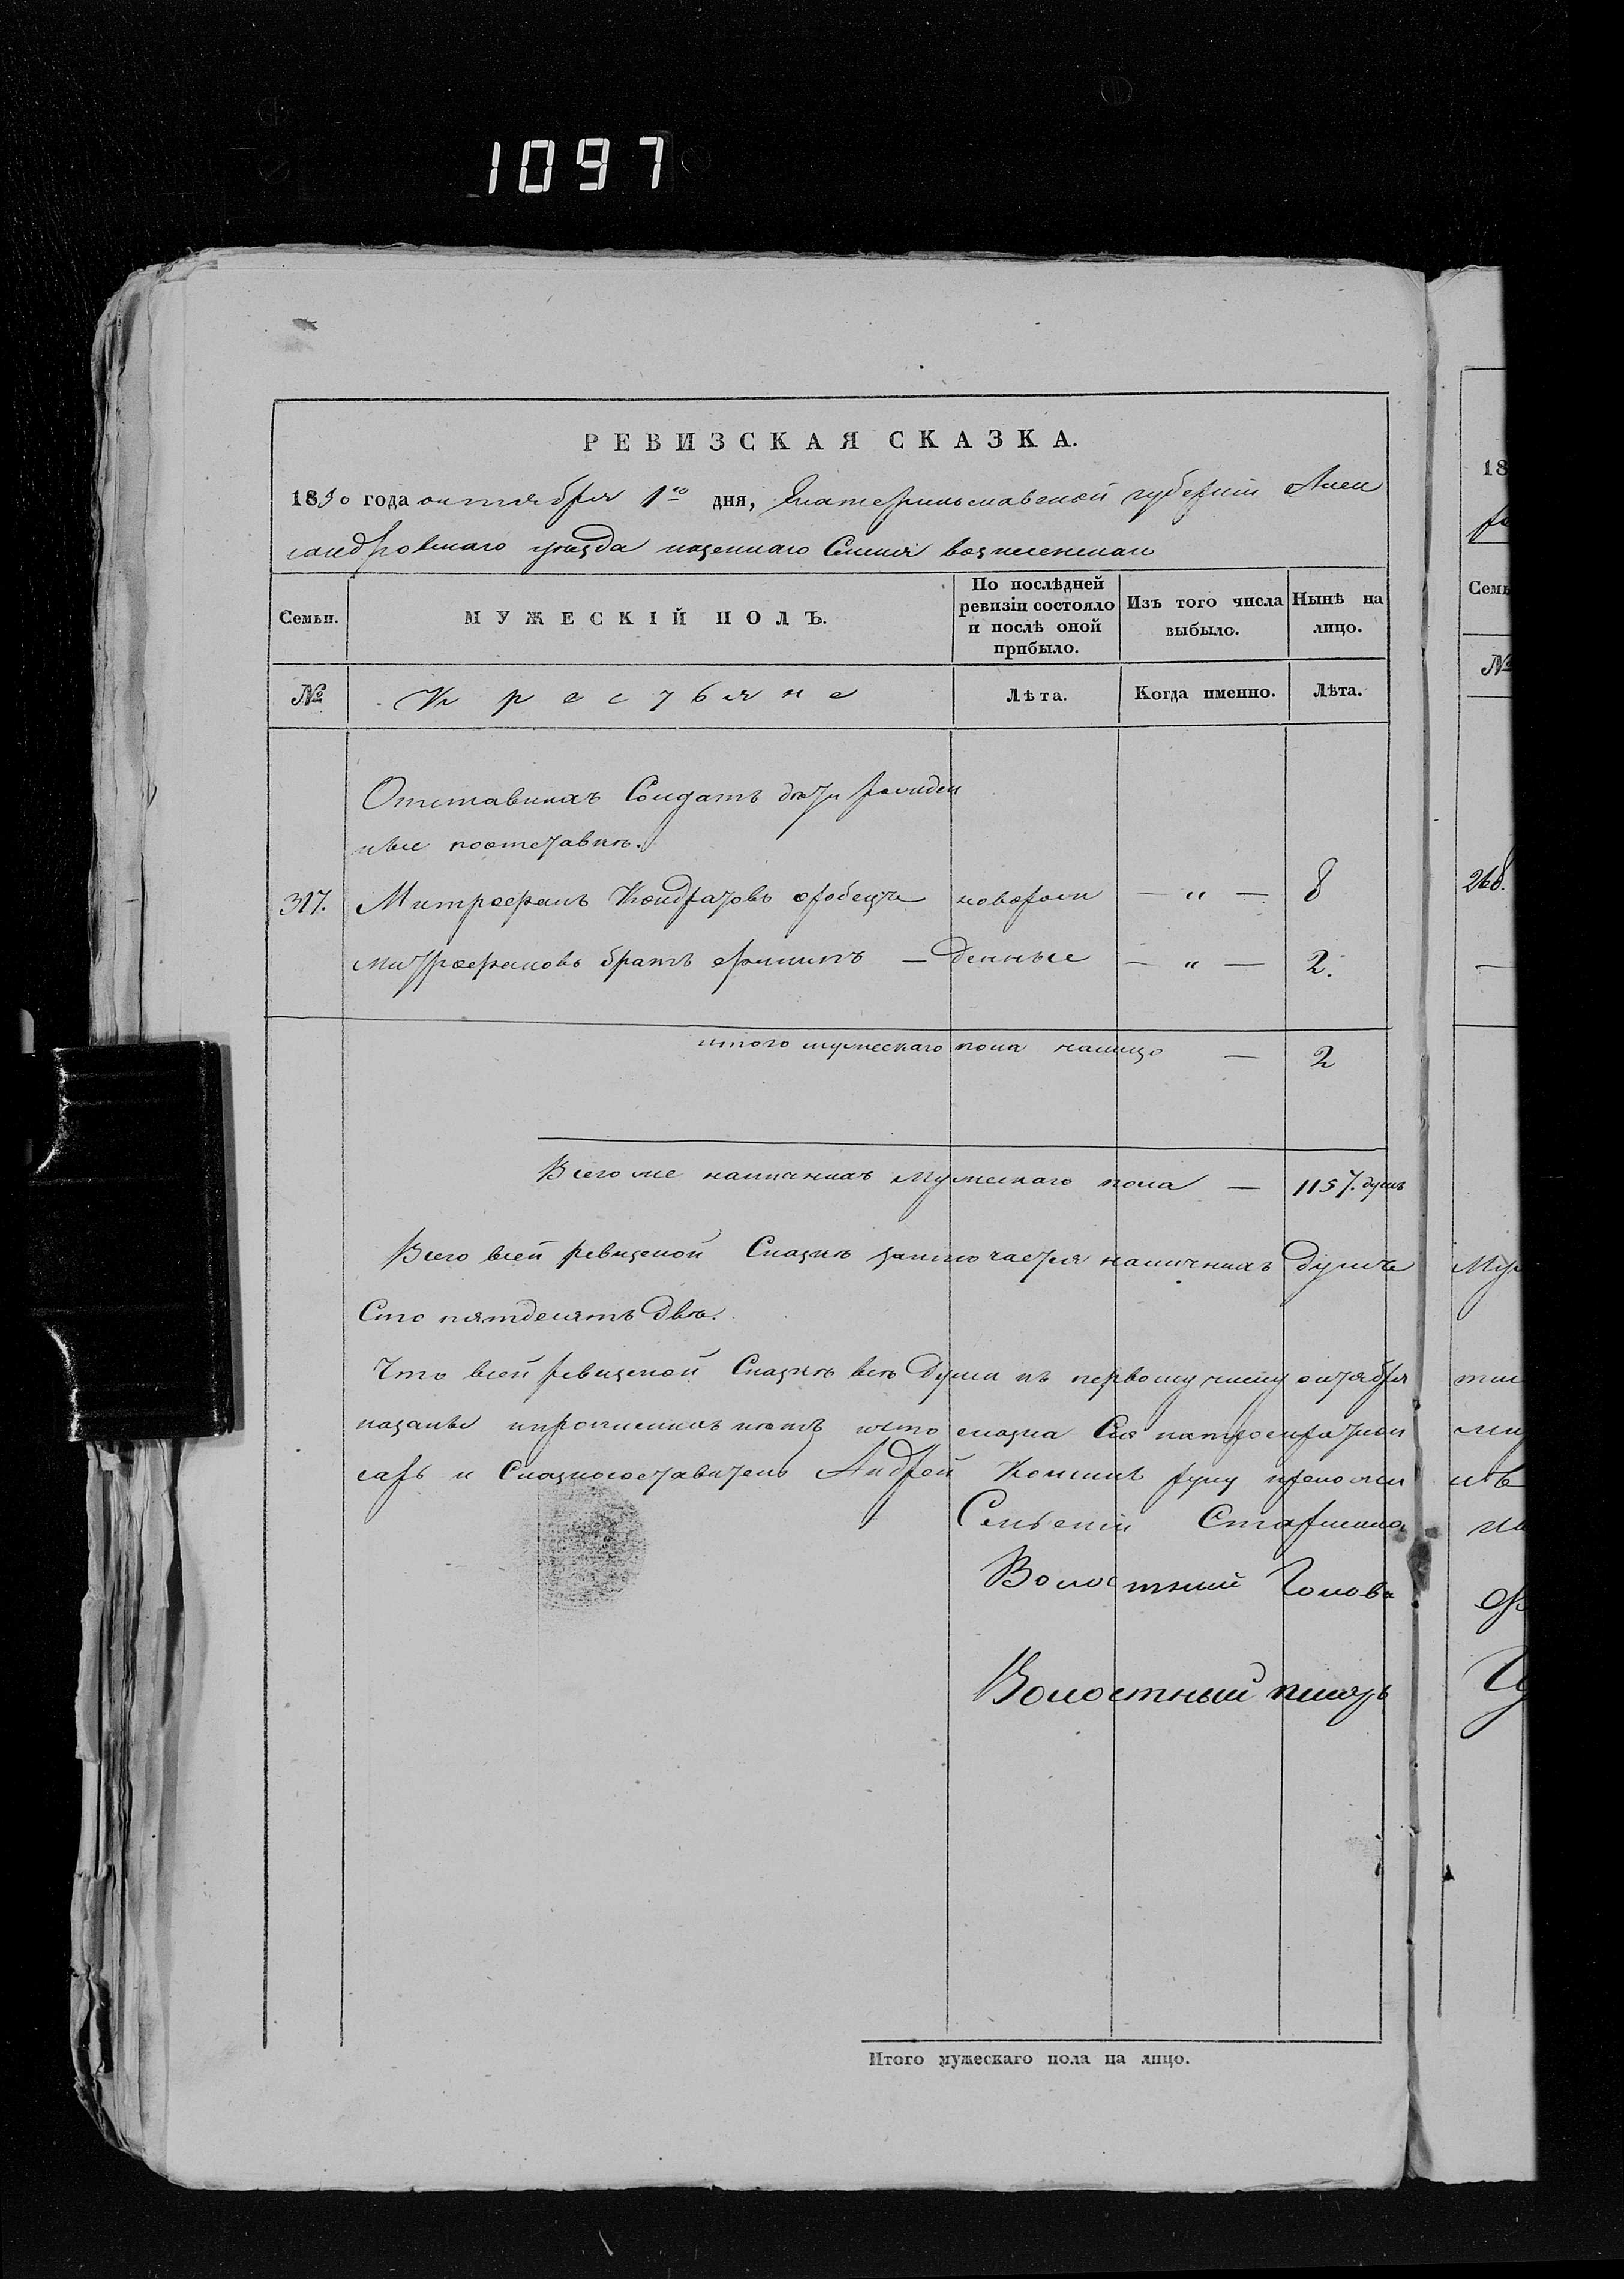 1097
РЕВИЗСКАЯ СКАЗКА.
1850 года октября 1го дня, Екатеринославской губернии Алек
сандровскаго уезда казеннаго Селения вознесенскаго
Семьи.
МУЖЕСКІЙ ПОЛЪ.
По послѣдней ревизіи состояло и послѣ оной прибыло.
Изъ того числа выбыло.
Нынѣ на лицо.
№
Крестьяне
Лѣта.
Когда именно.
Лѣта.
Отставныхъ Солдатъ дѣти рожден
ные поотставкѣ.
317. Митрофанъ Кондратовъ новорож — „ — 8
митрофановъ братъ — денные — „ — 2.
итого мужескаго пола налицо — 2
Всего же наличныхъ Мужескаго пола — 1157. душъ
Всего всей ревизской Сказкѣ заключается наличныхъ Душъ
Сто пятдесятъ Двѣ.
Что всей ревизской Сказкѣ всѣ Души къ первому числу октября
показаны нѣтъ что сказка Сия
сарь и Сказкосоставитель Андрей руку приложи
Старшина
Волостный Голова
Волостный писарь
Итого мужескаго пола на лицо.
18
Семь
№
268.